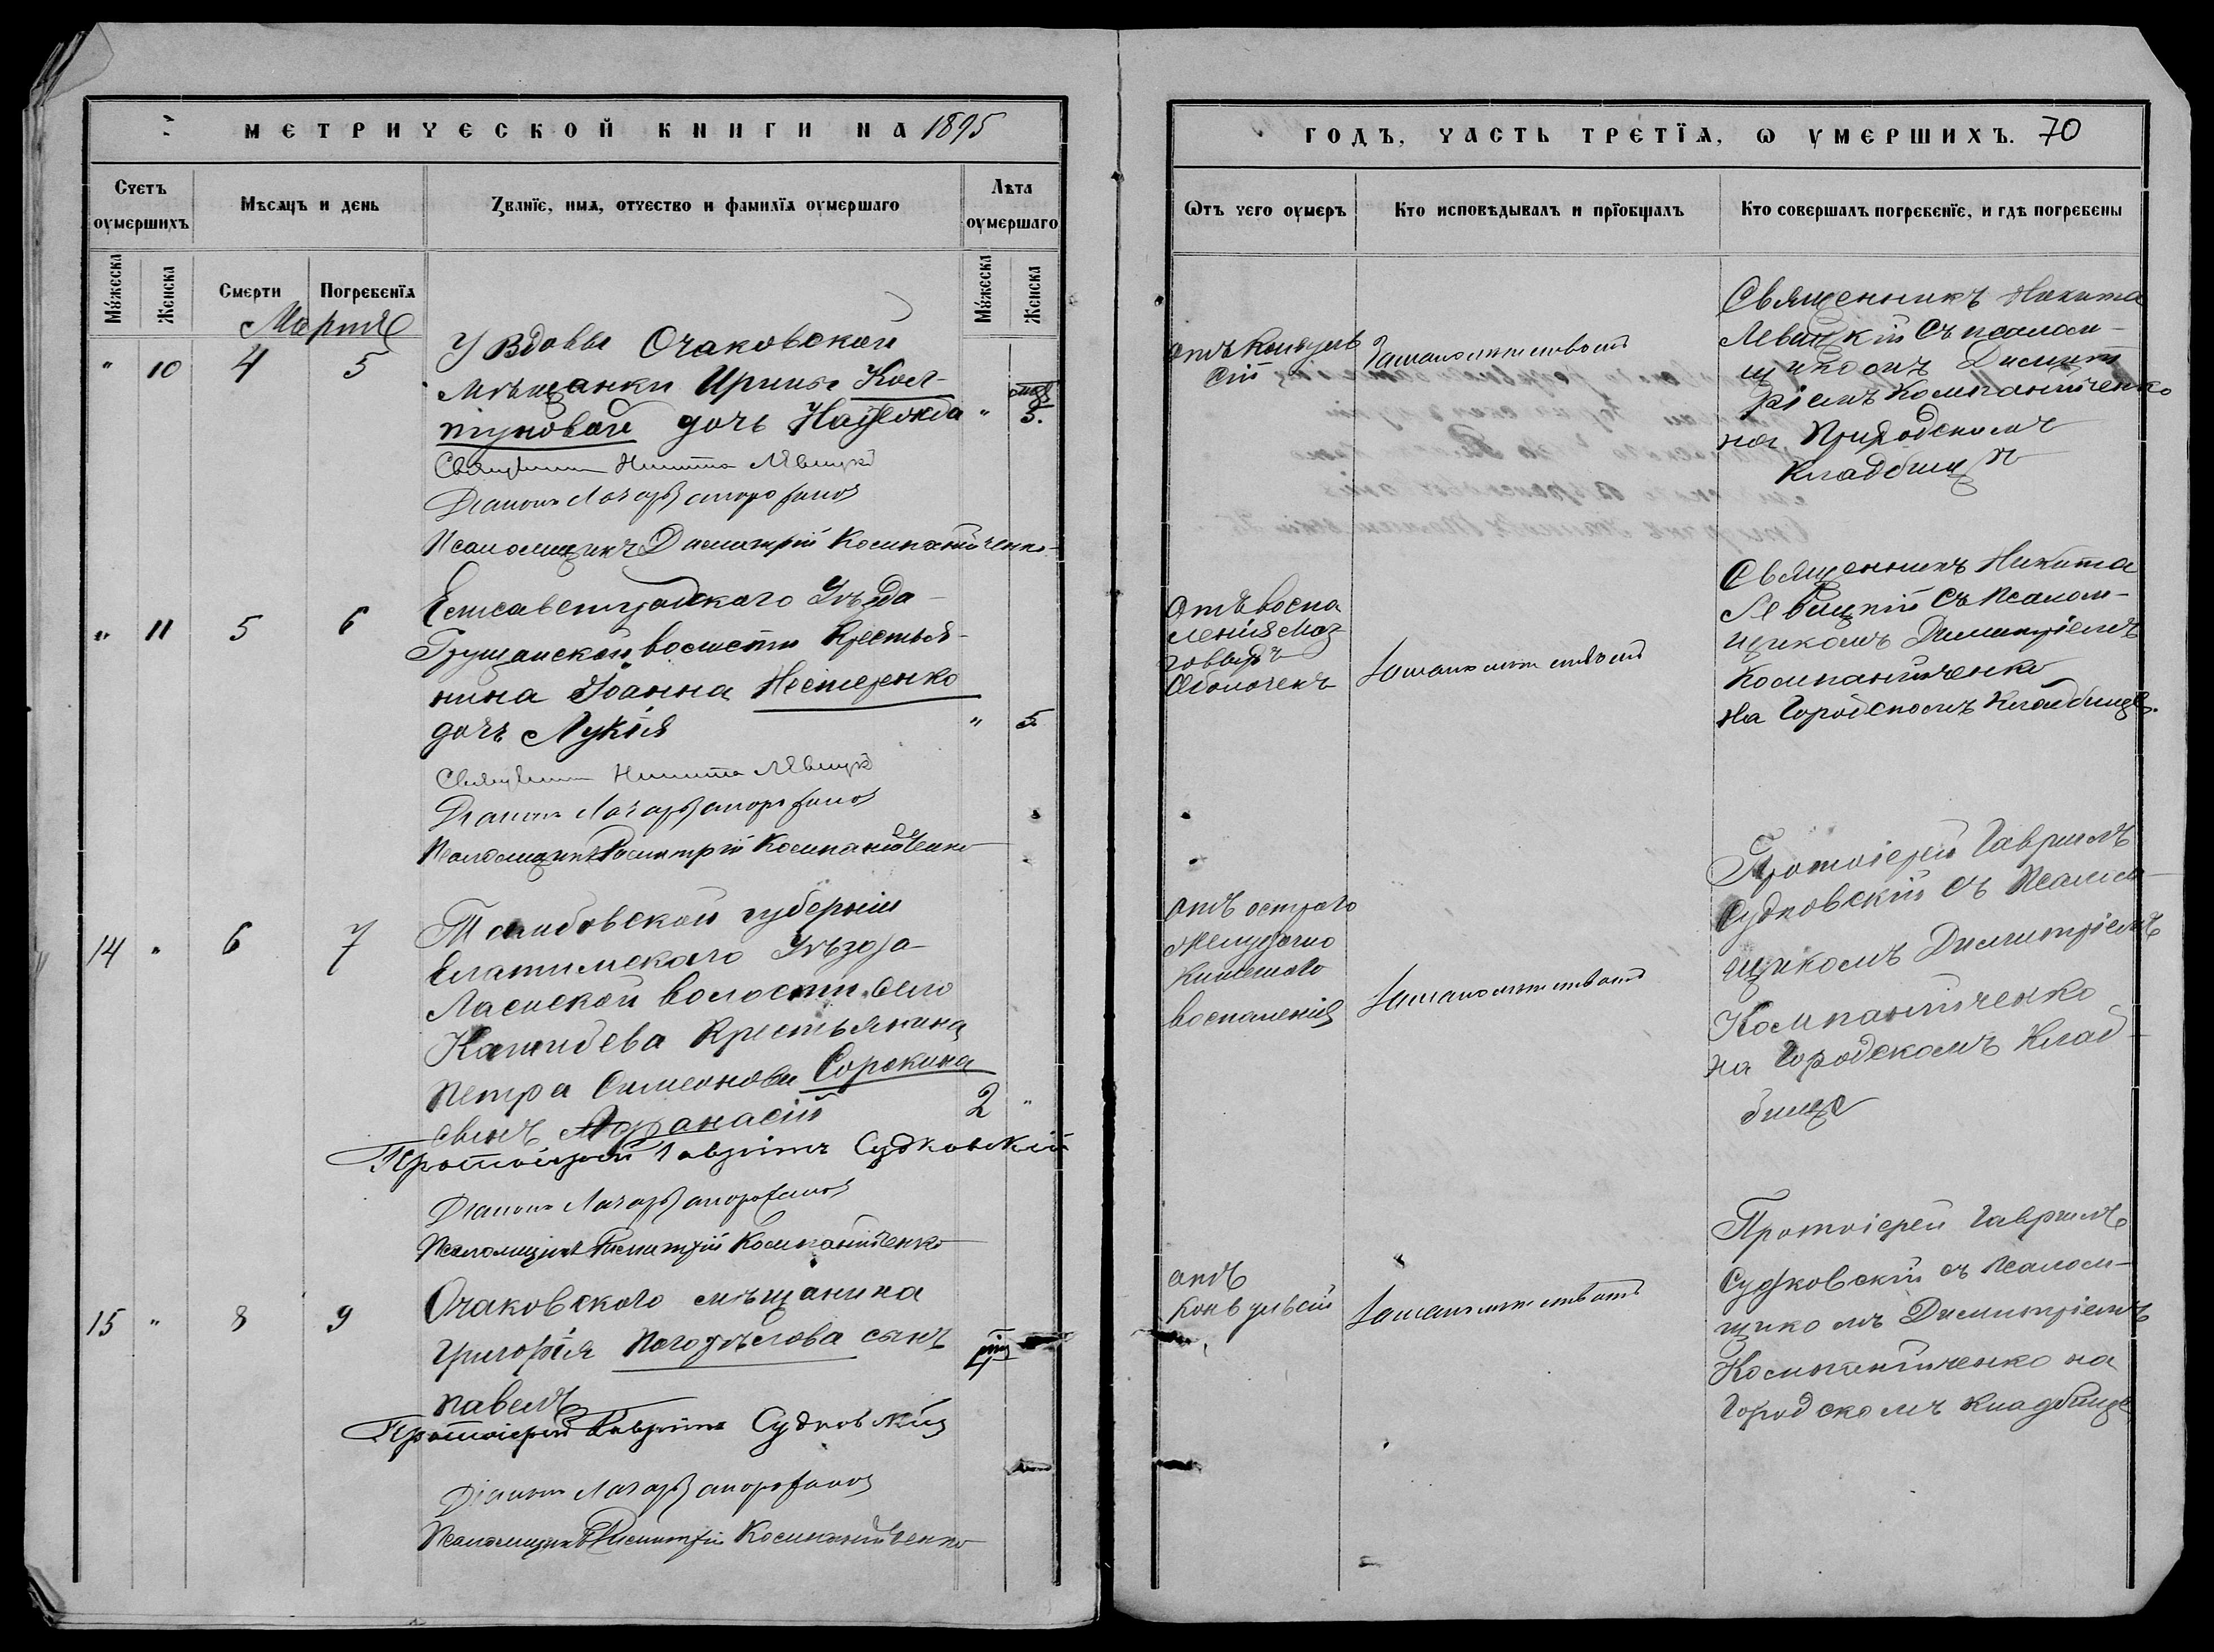 МЕТРИЧЕСКОЙ КНИГИ НА 1895
Счетъ оумершихъ
Мѣсяцъ и день
Званїе, имя, отчество и фамилїя оумершаго
Лѣта оумершаго
Мужеска
Женска
Смерти
Погребенїя
Мужеска
Женска
Марта
" 10 4 5
У Вдовы Очаковской
Мѣщанки Ирины
дочь Надежда " 3.
Священникъ Никита Левицкій
Діаконъ Лазарь
Псаломщикъ Димитрій Компанійченко
" 11 5 6
Елисаветградскаго Уѣзда
волости Крестья-
нина Іоанна Нестеренко
дочь Лукія " 5
Священникъ Никита Левицкій
Діаконъ Лазарь
Псаломщикъ Димитрій Компанійченко
14 " 6 7
Тамбовской губерніи
Елатомскаго Уѣзда
волости села
Крестьянина
Петра Симеонова Сорокина
сынъ Афанасій 2 "
Протоіерей Гавріилъ Судковскій
Діаконъ Лазарь
Псаломщикъ Димитрій Компанійченко
15 " 8 9
Очаковскаго мѣщанина
Григорія Погорѣлова сынъ
Павелъ
Протоіерей Гавріилъ Судковскій
Діаконъ Лазарь
Псаломщикъ Димитрій Компанійченко
ГОДЪ, ЧАСТЬ ТРЕТЇЯ, Ѡ УМЕРШИХЪ. 70
Ѿтъ чего оумеръ
Кто исповѣдывалъ и прїобщалъ
Кто совершалъ погребенїе, и гдѣ погребены
отъ Конвуль
сій
За малолѣтствомъ
Священникъ Никита
Левицкій съ псалом-
щикомъ Димит
ріемъ Компанійченко
на Приходскомъ
Кладбищѣ
Отъ воспа
ленія Моз
говыхъ
Оболочекъ
За малолѣтствомъ
Священникъ Никита
Левицкій съ Псалом-
щикомъ Димитріемъ
Компанійченко
на Городскомъ Кладбищѣ.
отъ остраго
Желудочно
Кишечнаго
воспаленія
За малолѣтствомъ
Протоіерей Гавріилъ
Судковскій съ Псалом-
щикомъ Димитріемъ
Компанійченко
на Городскомъ Клад-
бищѣ
отъ
Конвульсій
За малолѣтствомъ
Протоіерей Гавріилъ
Судковскій съ Псалом-
щикомъ Димитріемъ
Компанійченко на
Городскомъ кладбищѣ